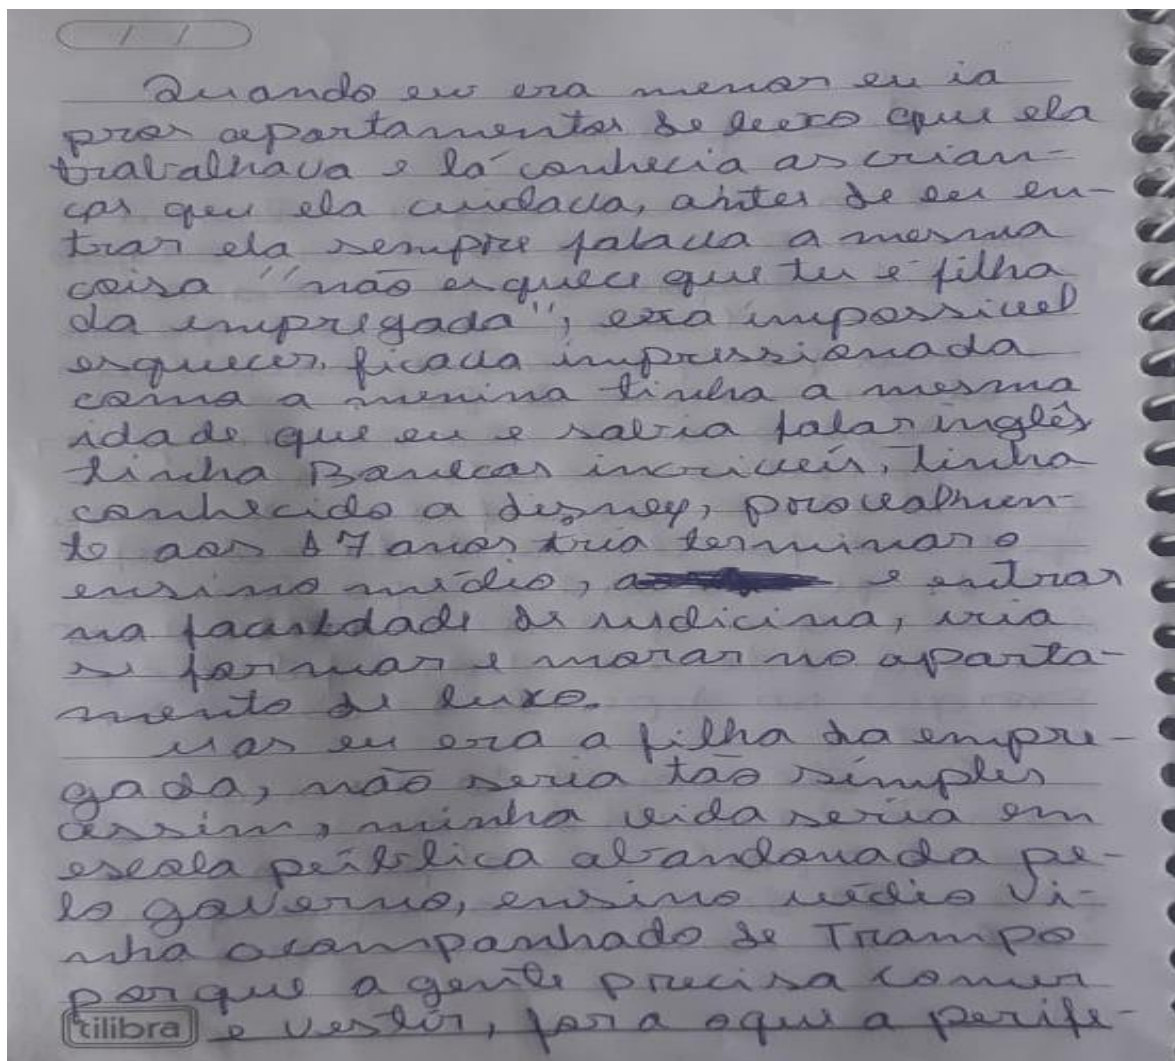 / /
Quando eu era menor eu ia
pros apartamentos de luxo que ela
trabalhava e lá conhecia as crian-
ças que ela cuidava, antes de eu en-
trar ela sempre falava a mesma
coisa "não esquece que tu é filha
da empregada", era impossivel
esquecer. ficava impressionada
como a menina tinha a mesma
idade que eu e sabia falar inglês
tinha Bonecas incriveis, tinha
conhecido a disney, provealmen-
te aos 17 anos iria terminar o
ensino médio, e entrar
na faculdade de medicina, iria
se formar e morar no aparta-
mento de luxo.
Mas eu era a filha da empre-
gada, não seria tão simples
assim, minha vida seria em
escola pública abandonada pe-
lo governo, ensino médio vi-
nha acompanhado de Trampo
porque a gente precisa comer
e vestir, fora oque a perife-
tilibra